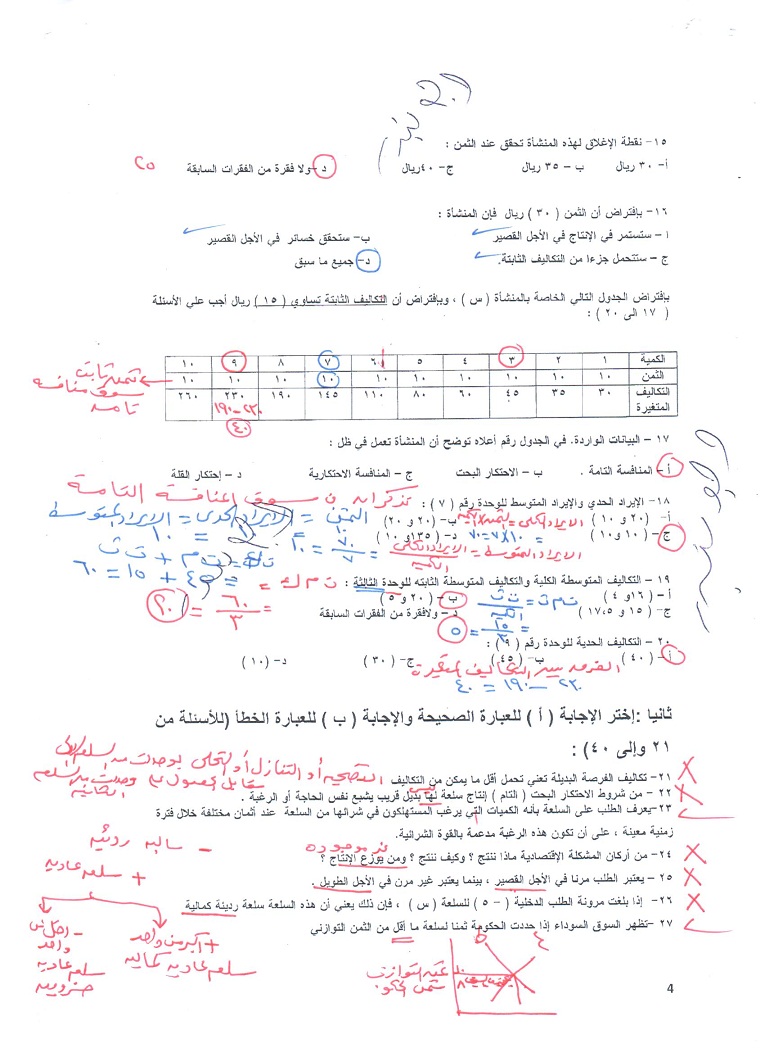 ١٥- نقطة الإغلاق لهذه المنشأة تحقق عند الثمن :
أ- ٣٠ ريال    ب – ٣٥ ريال    ج- ٤٠ريال    د-ولا فقرة من الفقرات السابقة    ٢٥
١٦- بإفتراض أن الثمن ( ٣٠ ) ريال فإن المنشأة :
ا – ستستمر في الإنتاج في الأجل القصير    ب- ستحقق خسائر في الأجل القصير
ج – ستتحمل جزءا من التكاليف الثابتة.    د- جميع ما سبق
بإفتراض الجدول التالي الخاصة بالمنشأة ( س ) ، وبإفتراض أن التكاليف الثابتة تساوي ( ١٥ ) ريال أجب على الأسئلة
( ١٧ الى ٢٠ ) :
الكمية ١ ٢ ٣ ٤ ٥ ٦ ٧ ٨ ٩ ١٠
الثمن ١٠ ١٠ ١٠ ١٠ ١٠ ١٠ ١٠ ١٠ ١٠ ١٠
التكاليف المتغيرة ٣٠ ٣٥ ٤٥ ٦٠ ٨٠ ١١٠ ١٤٥ ١٩٠ ٢٣٠ ٢٦٠
ثمن ثابت
سوق منافسة
تامة
٢٣٠-١٩٠
٤٠
١٧ – البيانات الواردة. في الجدول رقم أعلاه توضح أن المنشأة تعمل في ظل :
أ- المنافسة التامة .    ب – الاحتكار البحت    ج – المنافسة الاحتكارية    د – إحتكار القلة
تذكر انه في سوق المنافسة التامة
١٨- الإيراد الحدي والإيراد المتوسط للوحدة رقم ( ٧ ) :
الثمن = الايراد الحدي = الايراد المتوسط
أ- ( ٢٠ و ١٠ )    ب- ( ٢٠ و ٢٠ )
الايراد الكلي = الثمن x الكمية
ج- ( ١٠ و ١٠ )    د- ( ١٣٥ و ١٠ )
= ١٠ x ٧ = ٧٠
الايراد المتوسط = الايراد الكلي / الكمية = ٧٠ / ٧ = ١٠
١٩ – التكاليف المتوسطة الكلية والتكاليف المتوسطة الثابته للوحدة الثالثة :
ت م ك = ت ك = ت م + ت ث
= ٤٥ + ١٥ = ٦٠
= ٦٠ / ٣ = ٢٠
أ – ( ١٦ و ٤ )    ب – ( ٢٠ و ٥ )
ت م ث = ت ث / الكمية
ج- ( ١٥ و ١٧،٥ )    د – ولافقرة من الفقرات السابقة
= ١٥ / ٣ = ٥
٢٠ – التكاليف الحدية للوحدة رقم ( ٩ ) :
أ – ( ٤٠ )    ب- ( ٤٥ )    ج- ( ٣٠ )    د- ( ١٠ )
الفرق بين التكاليف المتغيرة
٢٣٠ – ١٩٠ = ٤٠
ثانيا :إختر الإجابة ( أ ) للعبارة الصحيحة والإجابة ( ب ) للعبارة الخطأ (للأسئلة من
٢١ وإلى ٤٠) :
٢١- تكاليف الفرصة البديلة تعني تحمل أقل ما يمكن من التكاليف
التضحية أو التنازل أو التخلي بوحدات من السلعة الأولى
مقابل الحصول على وحدات من السلعة الثانية
٢٢ – من شروط الاحتكار البحت ( التام ) إنتاج سلعة لها بديل قريب يشبع نفس الحاجة أو الرغبة .
ليس
٢٣-يعرف الطلب على السلعة بأنه الكميات التي يرغب المستهلكون في شرائها من السلعة عند أثمان مختلفة خلال فترة
زمنية معينة ، على أن تكون هذه الرغبة مدعمة بالقوة الشرائية.
٢٤- من أركان المشكلة الإقتصادية ماذا ننتج ؟ وكيف ننتج ؟ ومن يوزع الإنتاج ؟
غير موجوده
٢٥ – يعتبر الطلب مرنا في الأجل القصير ، بينما يعتبر غير مرن في الأجل الطويل.
٢٦- إذا بلغت مرونة الطلب الدخلية ( – ٥ ) للسلعة ( س ) ، فإن ذلك يعني أن هذه السلعة سلعة رديئة كمالية
٢٧ –تظهر السوق السوداء إذا حددت الحكومة ثمنا لسلعة ما أقل من الثمن التوازني
- سالبه رديئه
+ سلعه عاديه
+ اكبر من واحد
سلعه عاديه كماليه
- اقل من
واحد
سلعه عاديه
ضروريه
ط ع
١٠
٨
ثمن التوازن
ثمن الحكومة
4